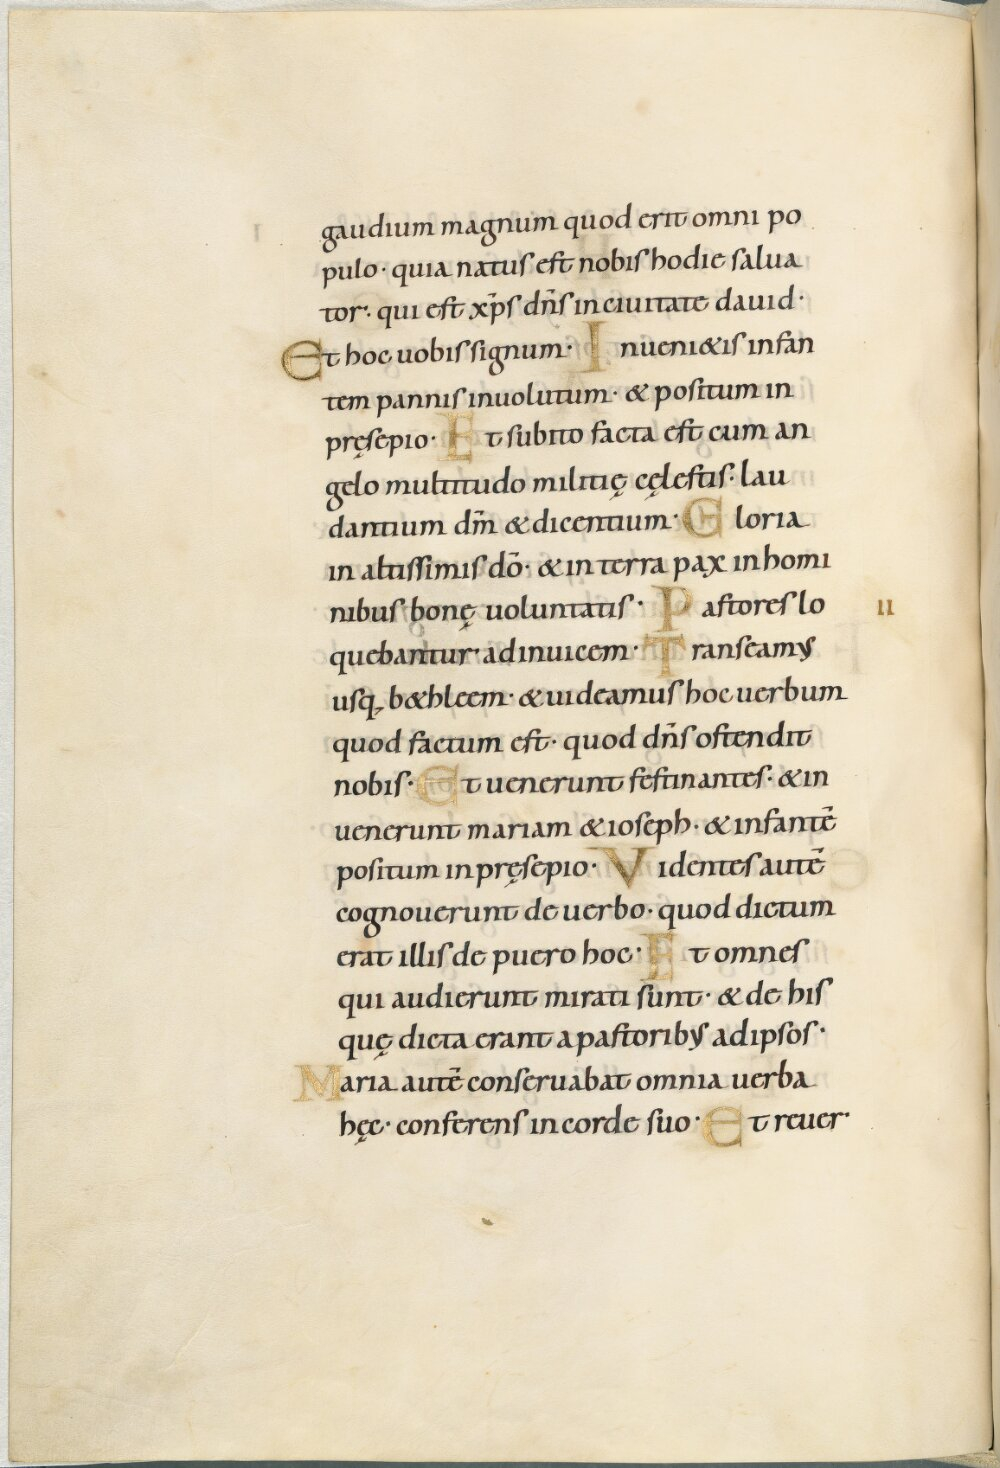 gaudium magnum quod erit omni po
pulo· quia natus est nobis hodie salua
tor· qui est xp̄s dn̄s in ciuitate dauid·
Et hoc uobis signum· Inueni&is infan
tem pannis inuolutum· & positum in
pręsepio· Et subito facta est cum an
gelo multitudo militię cęlestis· lau
dantium dm̄ & dicentium· Gloria
in altissimis dō· & in terra pax in homi
nibus bonę uoluntatis· Pastores lo
quebantur· adinuicem· Transeamus
usq; b&hleem· & uideamus hoc uerbum
quod factum est· quod dn̄s ostendit
nobis· Et uenerunt festinantes· & in
uenerunt mariam & ioseph· & infantē
positum in pręsepio· Videntes autē
cognouerunt de uerbo· quod dictum
erat illis de puero hoc· Et omnes
qui audierunt mirati sunt· & de his
quę dicta erant a pastoribus ad ipsos·
Maria autē conseruabat omnia uerba
hęc· conferens in corde suo· Et reuer·
II